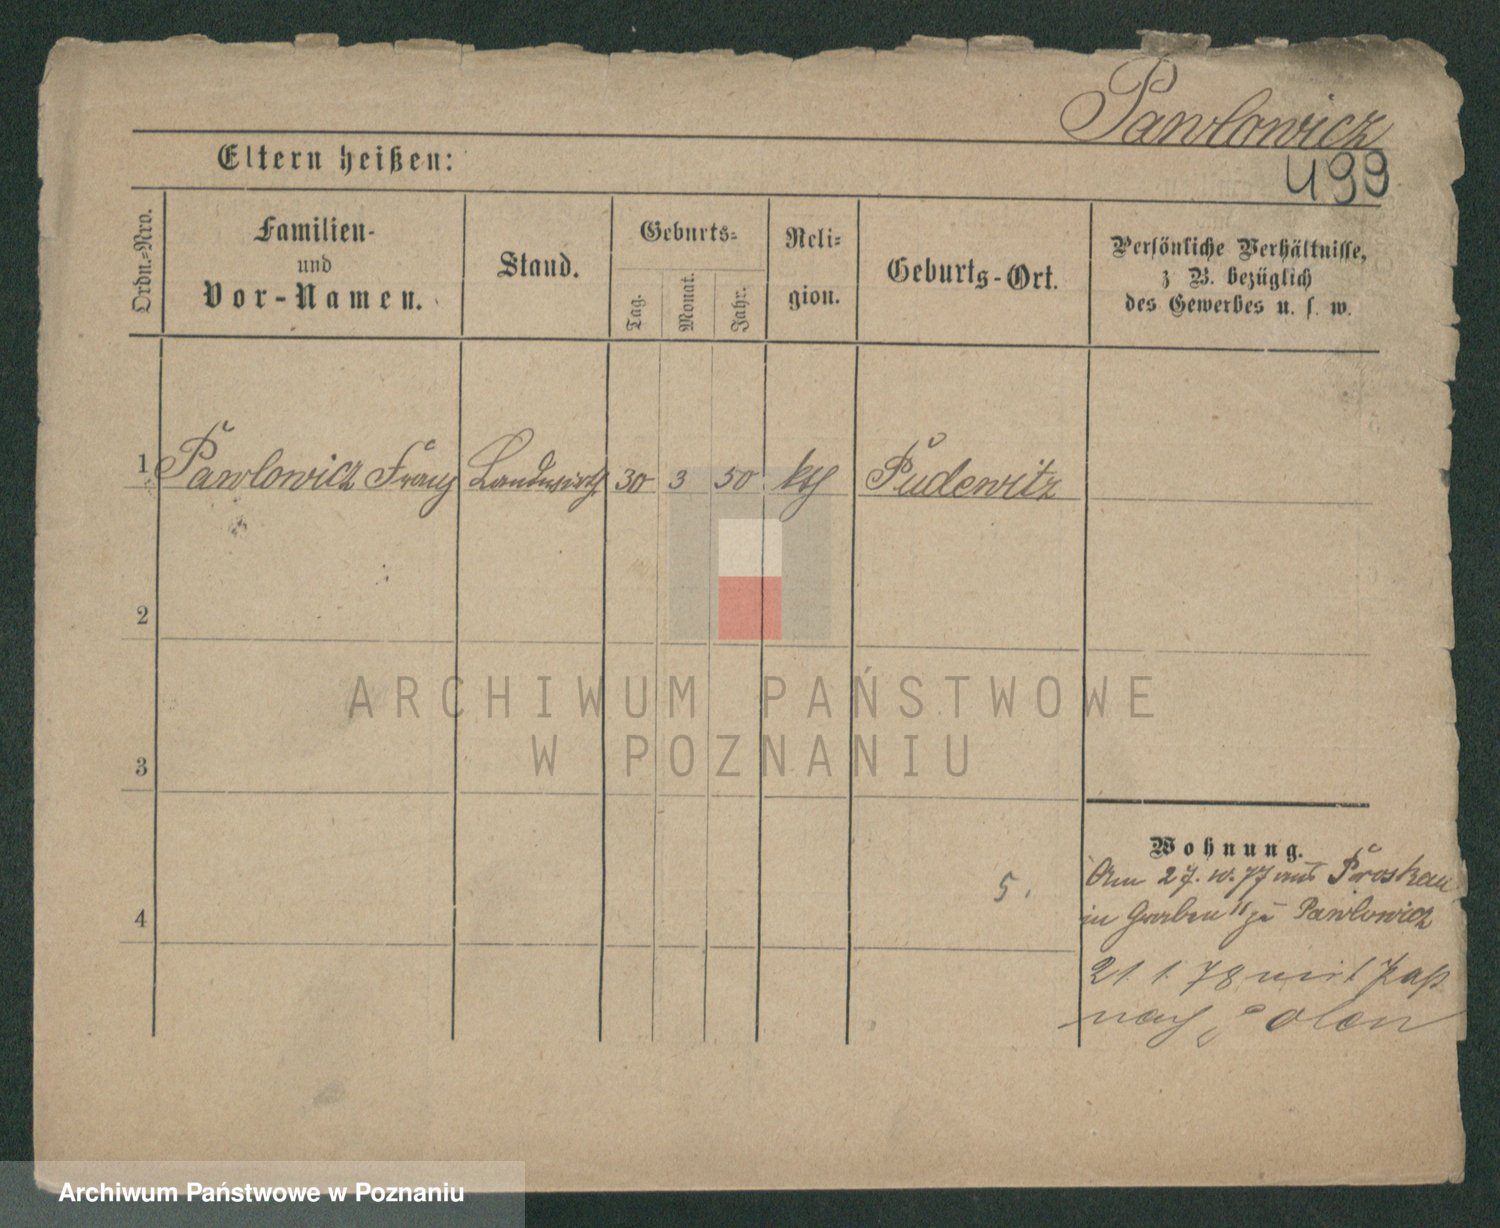 Pawlowicz
Eltern heißen:
499
Ordn.=Nro.
Familien-
und
Vor-Namen.
Stand.
Geburts=
Tag.
Monat.
Jahr.
Reli=
gion.
Geburts-Ort.
Persönliche Verhältnisse,
z B. bezüglich
des Gewerbes u. s. w.
1 Pawlowicz Franz Landwirth 30 3 50 kth Pudewitz
2
ARCHIWUM PAŃSTWOWE
W POZNANIU
3
Wohnung.
Am 27. 10. 77 aus Proskau
5.
in Graben 11 zu Pawlowicz
4
21 1 78 mit Paß
nach Polen
Archiwum Państwowe w Poznaniu